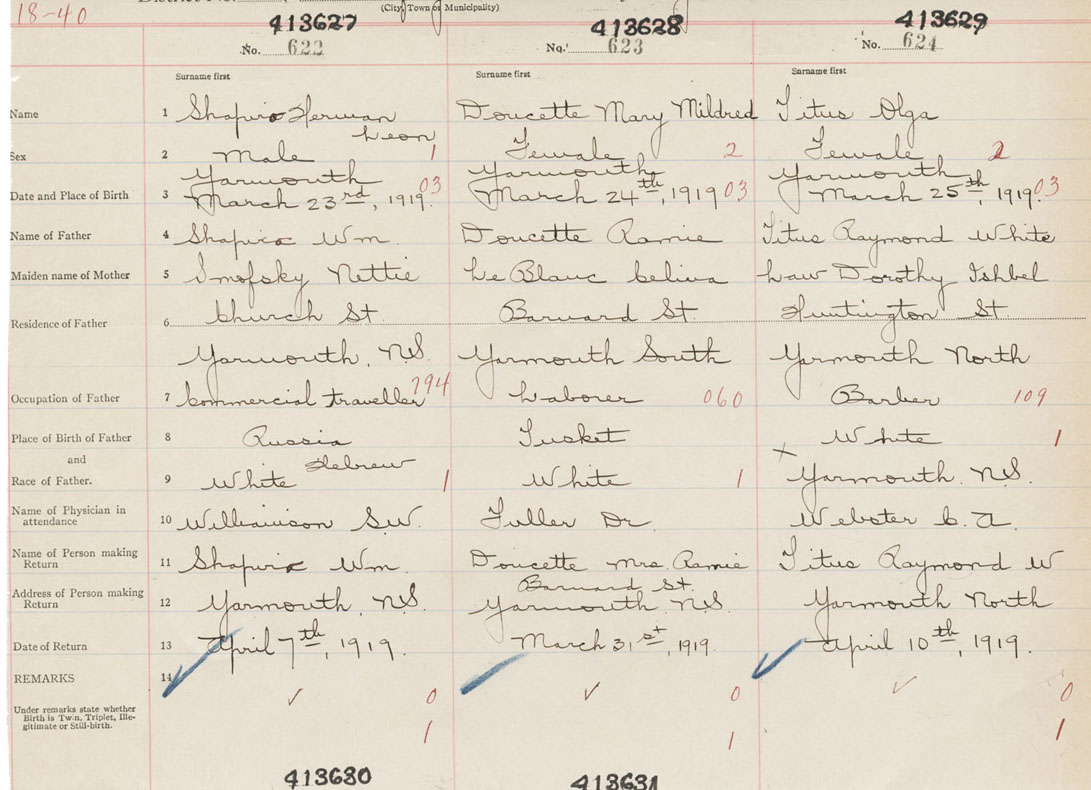 18-40
(City, Town or Municipality)
413627 413628 413629
No. 622 No. 623 No. 624
Surname first Surname first Surname first
Name 1 Shapiro Herman Doucette Mary Mildred Titus Olga
Leon
Sex 2 Male 1 Female 2 Female 2
Yarmouth Yarmouth Yarmouth
Date and Place of Birth 3 March 23rd, 1919. 03 March 24th, 1919 03 March 25th, 1919. 03
Name of Father 4 Shapiro Wm. Doucette Ramie Titus Raymond White
Maiden name of Mother 5 Smofsky Nettie Le Blanc Celiva Law Dorothy Ishbel
Residence of Father 6 Church St. Barnard St Huntington St.
Yarmouth, N.S. Yarmouth South Yarmouth North
Occupation of Father 7 Commercial traveller 794 Laborer 060 Barber 109
Place of Birth of Father 8 Russia Tusket White 1
and Hebrew x
Race of Father. 9 White 1 White 1 Yarmouth. N.S.
Name of Physician in
attendance 10 Williamson S.W. Fuller Dr. Webster C. A.
Name of Person making
Return 11 Shapiro Wm. Doucette Mrs. Ramie Titus Raymond W
Address of Person making Barnard St.
Return 12 Yarmouth, N.S. Yarmouth N.S. Yarmouth North
Date of Return 13 April 7th, 1919. March 31st, 1919. April 10th, 1919.
REMARKS 14
0 0 0
Under remarks state whether
Birth is Twin, Triplet, Ille-
gitimate or Still-birth. 1 1 1
413630 413631